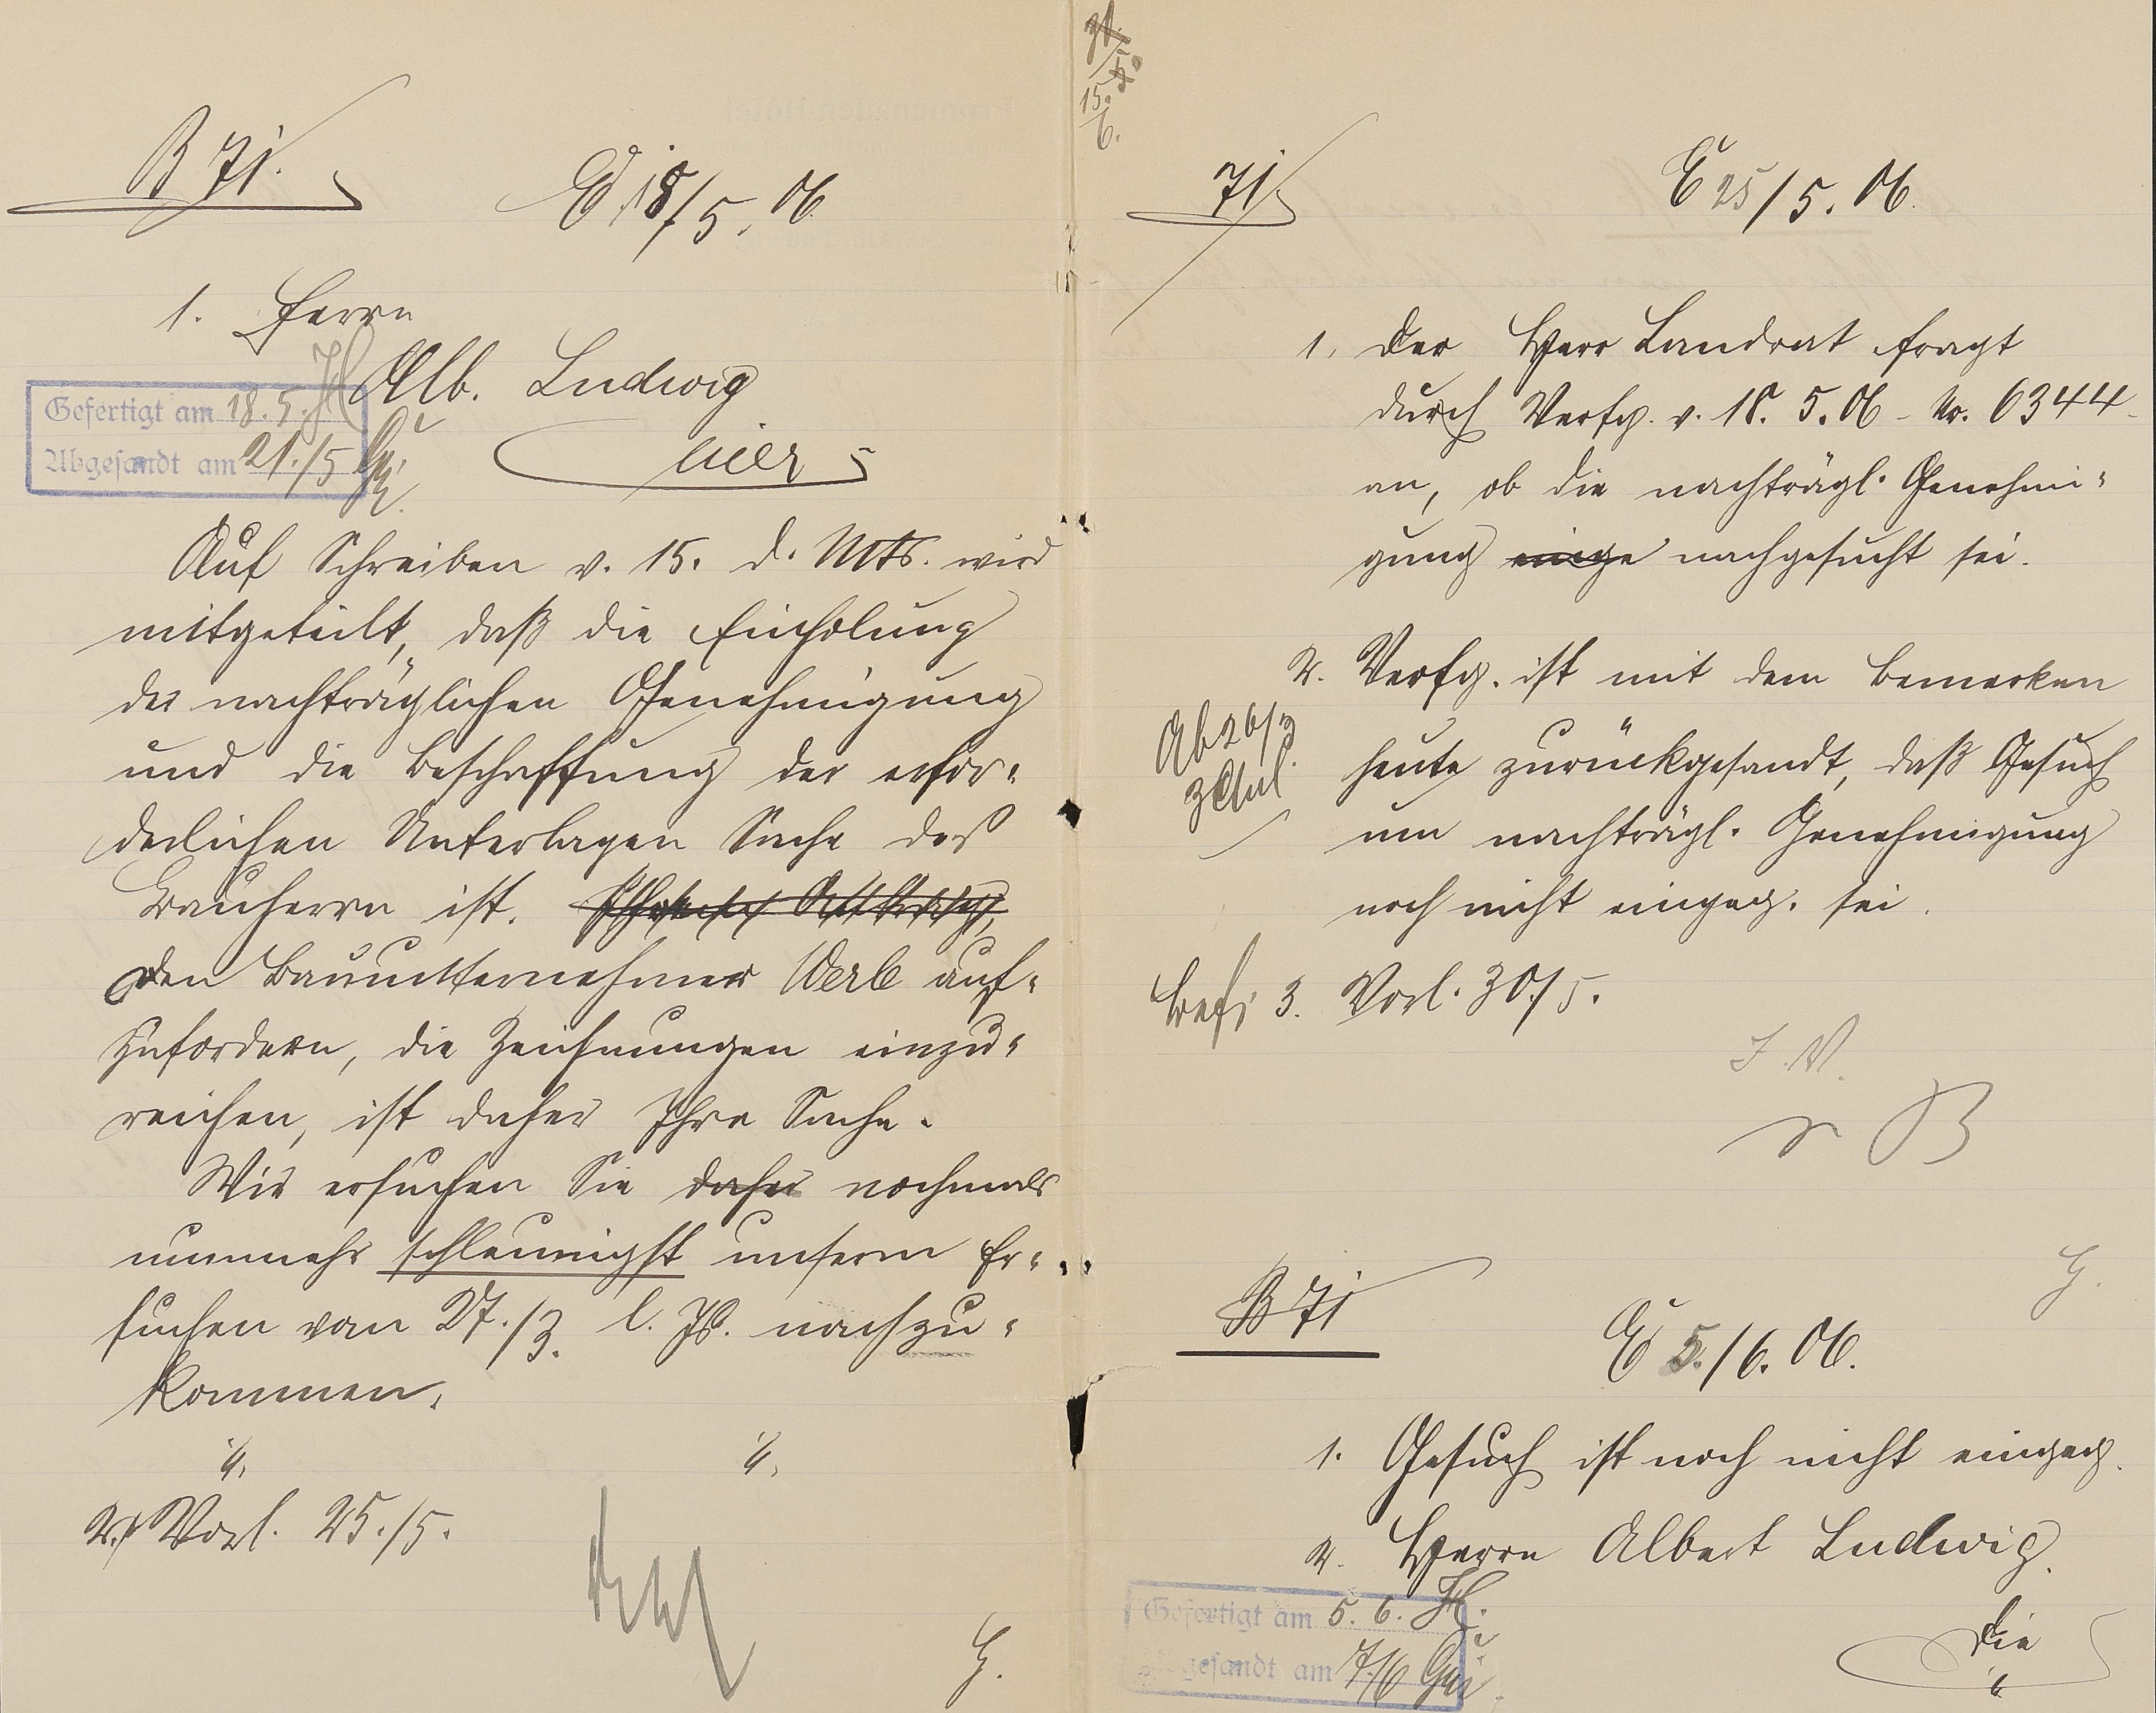 B 71.
E 18/5. 06.
1. Herrn
Alb. Ludwig
hier
Gefertigt am 18. 5. H
Abgesandt am 21./5
Auf Schreiben v. 15. d. Mts. wird
mitgeteilt, daß die Einholung
der nachträglichen Genehmigung
und die Beschaffung der erfor-
derlichen Unterlagen Sache des
Bauherrn ist.
Den Bauunternehmer Werle auf-
zufordern, die Zeichnungen einzu-
reichen, ist daher Ihre Sache.
Wir ersuchen Sie daher nochmals
nunmehr schleunigst unserm Er-
suchen vom 27./3. l. Js. nachzu-
kommen.
2. Vorl. 25./5.
G.
31.
5.
15.
6.
71
E 25/5. 06.
1. Der Herr Landrat fragt
durch Verfg. v. 18. 5. 06 - Nr. 6344 -
an, ob die nachträgl. Genehmi-
gung einge nachgesucht sei.
2. Verfg. ist mit dem Bemerken
heute zurückgesandt, daß Gesuch
um nachträgl. Genehmigung
noch nicht eingeg. sei.
Ab 26/5
3. Vorl. 30./5.
I. V.
G.
B 71
E 5./6. 06.
1. Gesuch ist noch nicht eingeg.
2. Herrn Albert Ludwig.
Gefertigt am 5. 6. H.
Abgesandt am 7./6
hier